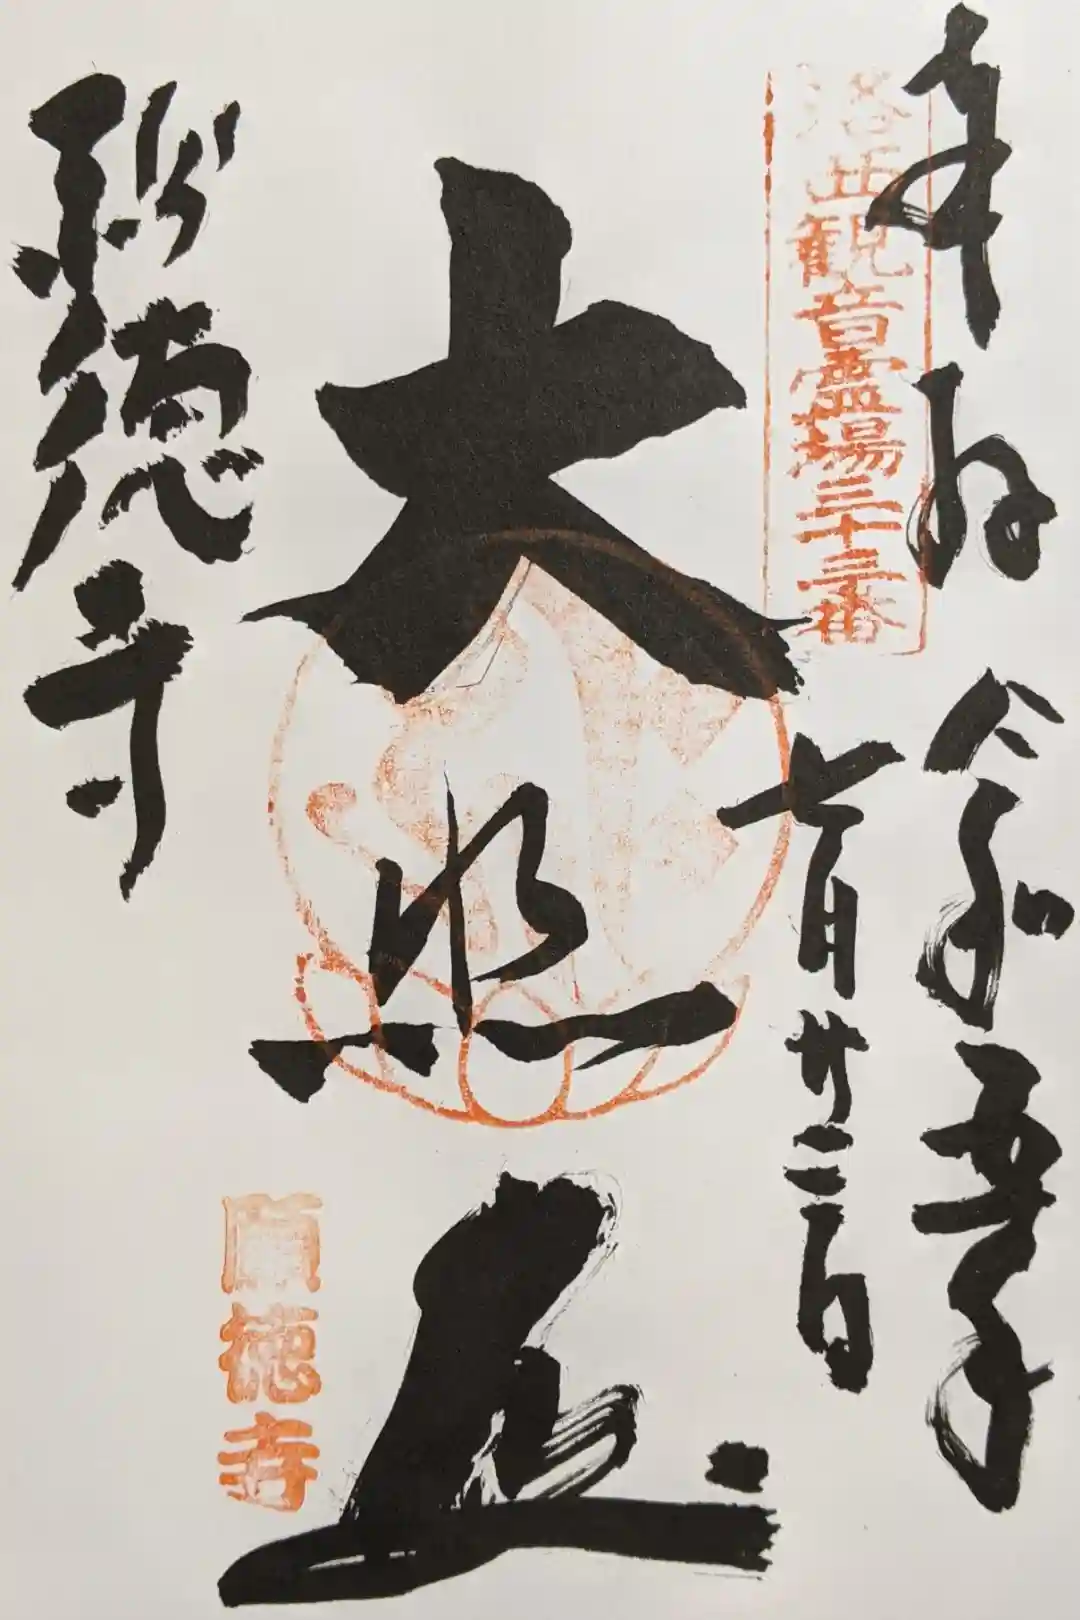 奉拝
令和五年
洛西観音霊場三十三番
七月廿二日
大悲殿
願徳寺
願徳寺